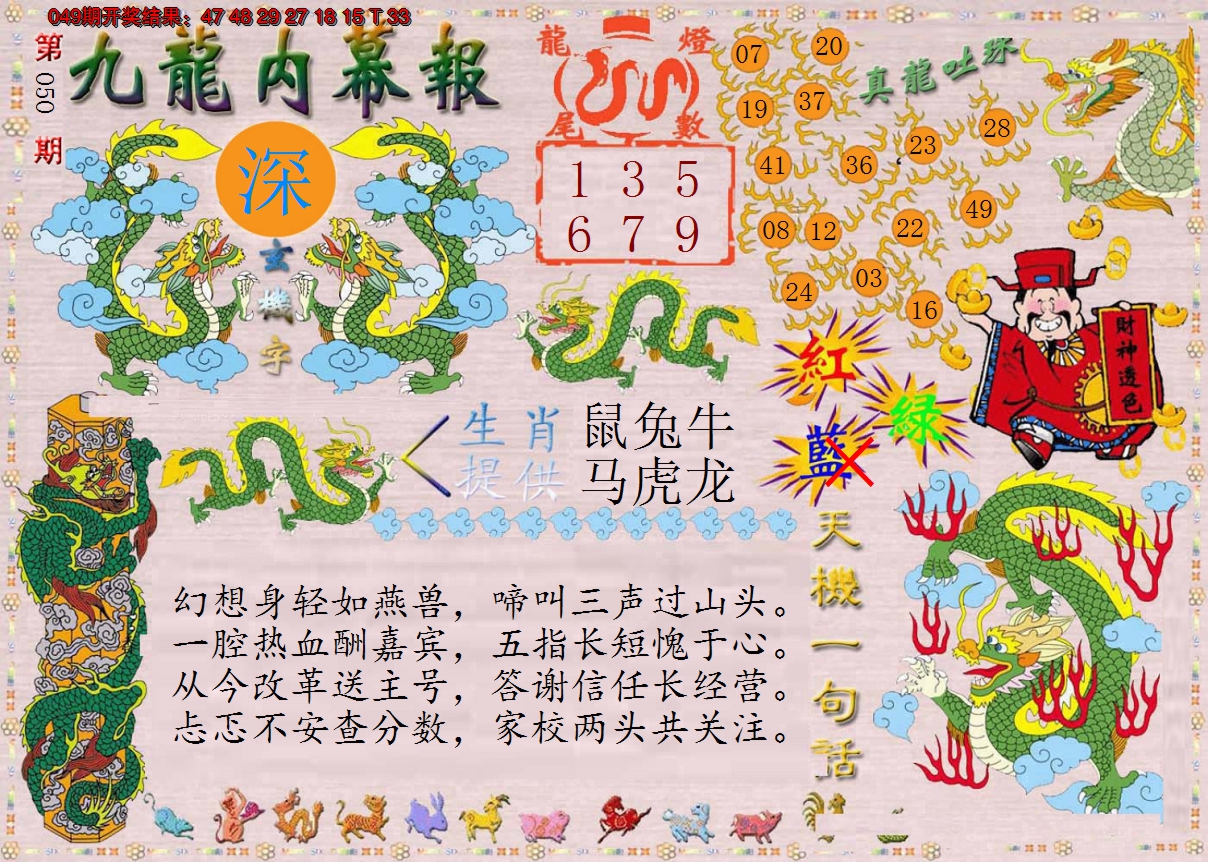 049期开奖结果：47 48 29 27 18 15 T 33
第
050
期
九龍内幕報
深
玄
機
字
龍 燈
尾 數
1 3 5
6 7 9
真龍吐珠
07 20
19 37
41 36 23 28
08 12 22 49
24 03 16
財神透色
紅
綠
藍
生肖
提供
鼠兔牛
马虎龙
天機一句話
幻想身轻如燕兽，啼叫三声过山头。
一腔热血酬嘉宾，五指长短愧于心。
从今改革送主号，答谢信任长经营。
忐忑不安查分数，家校两头共关注。